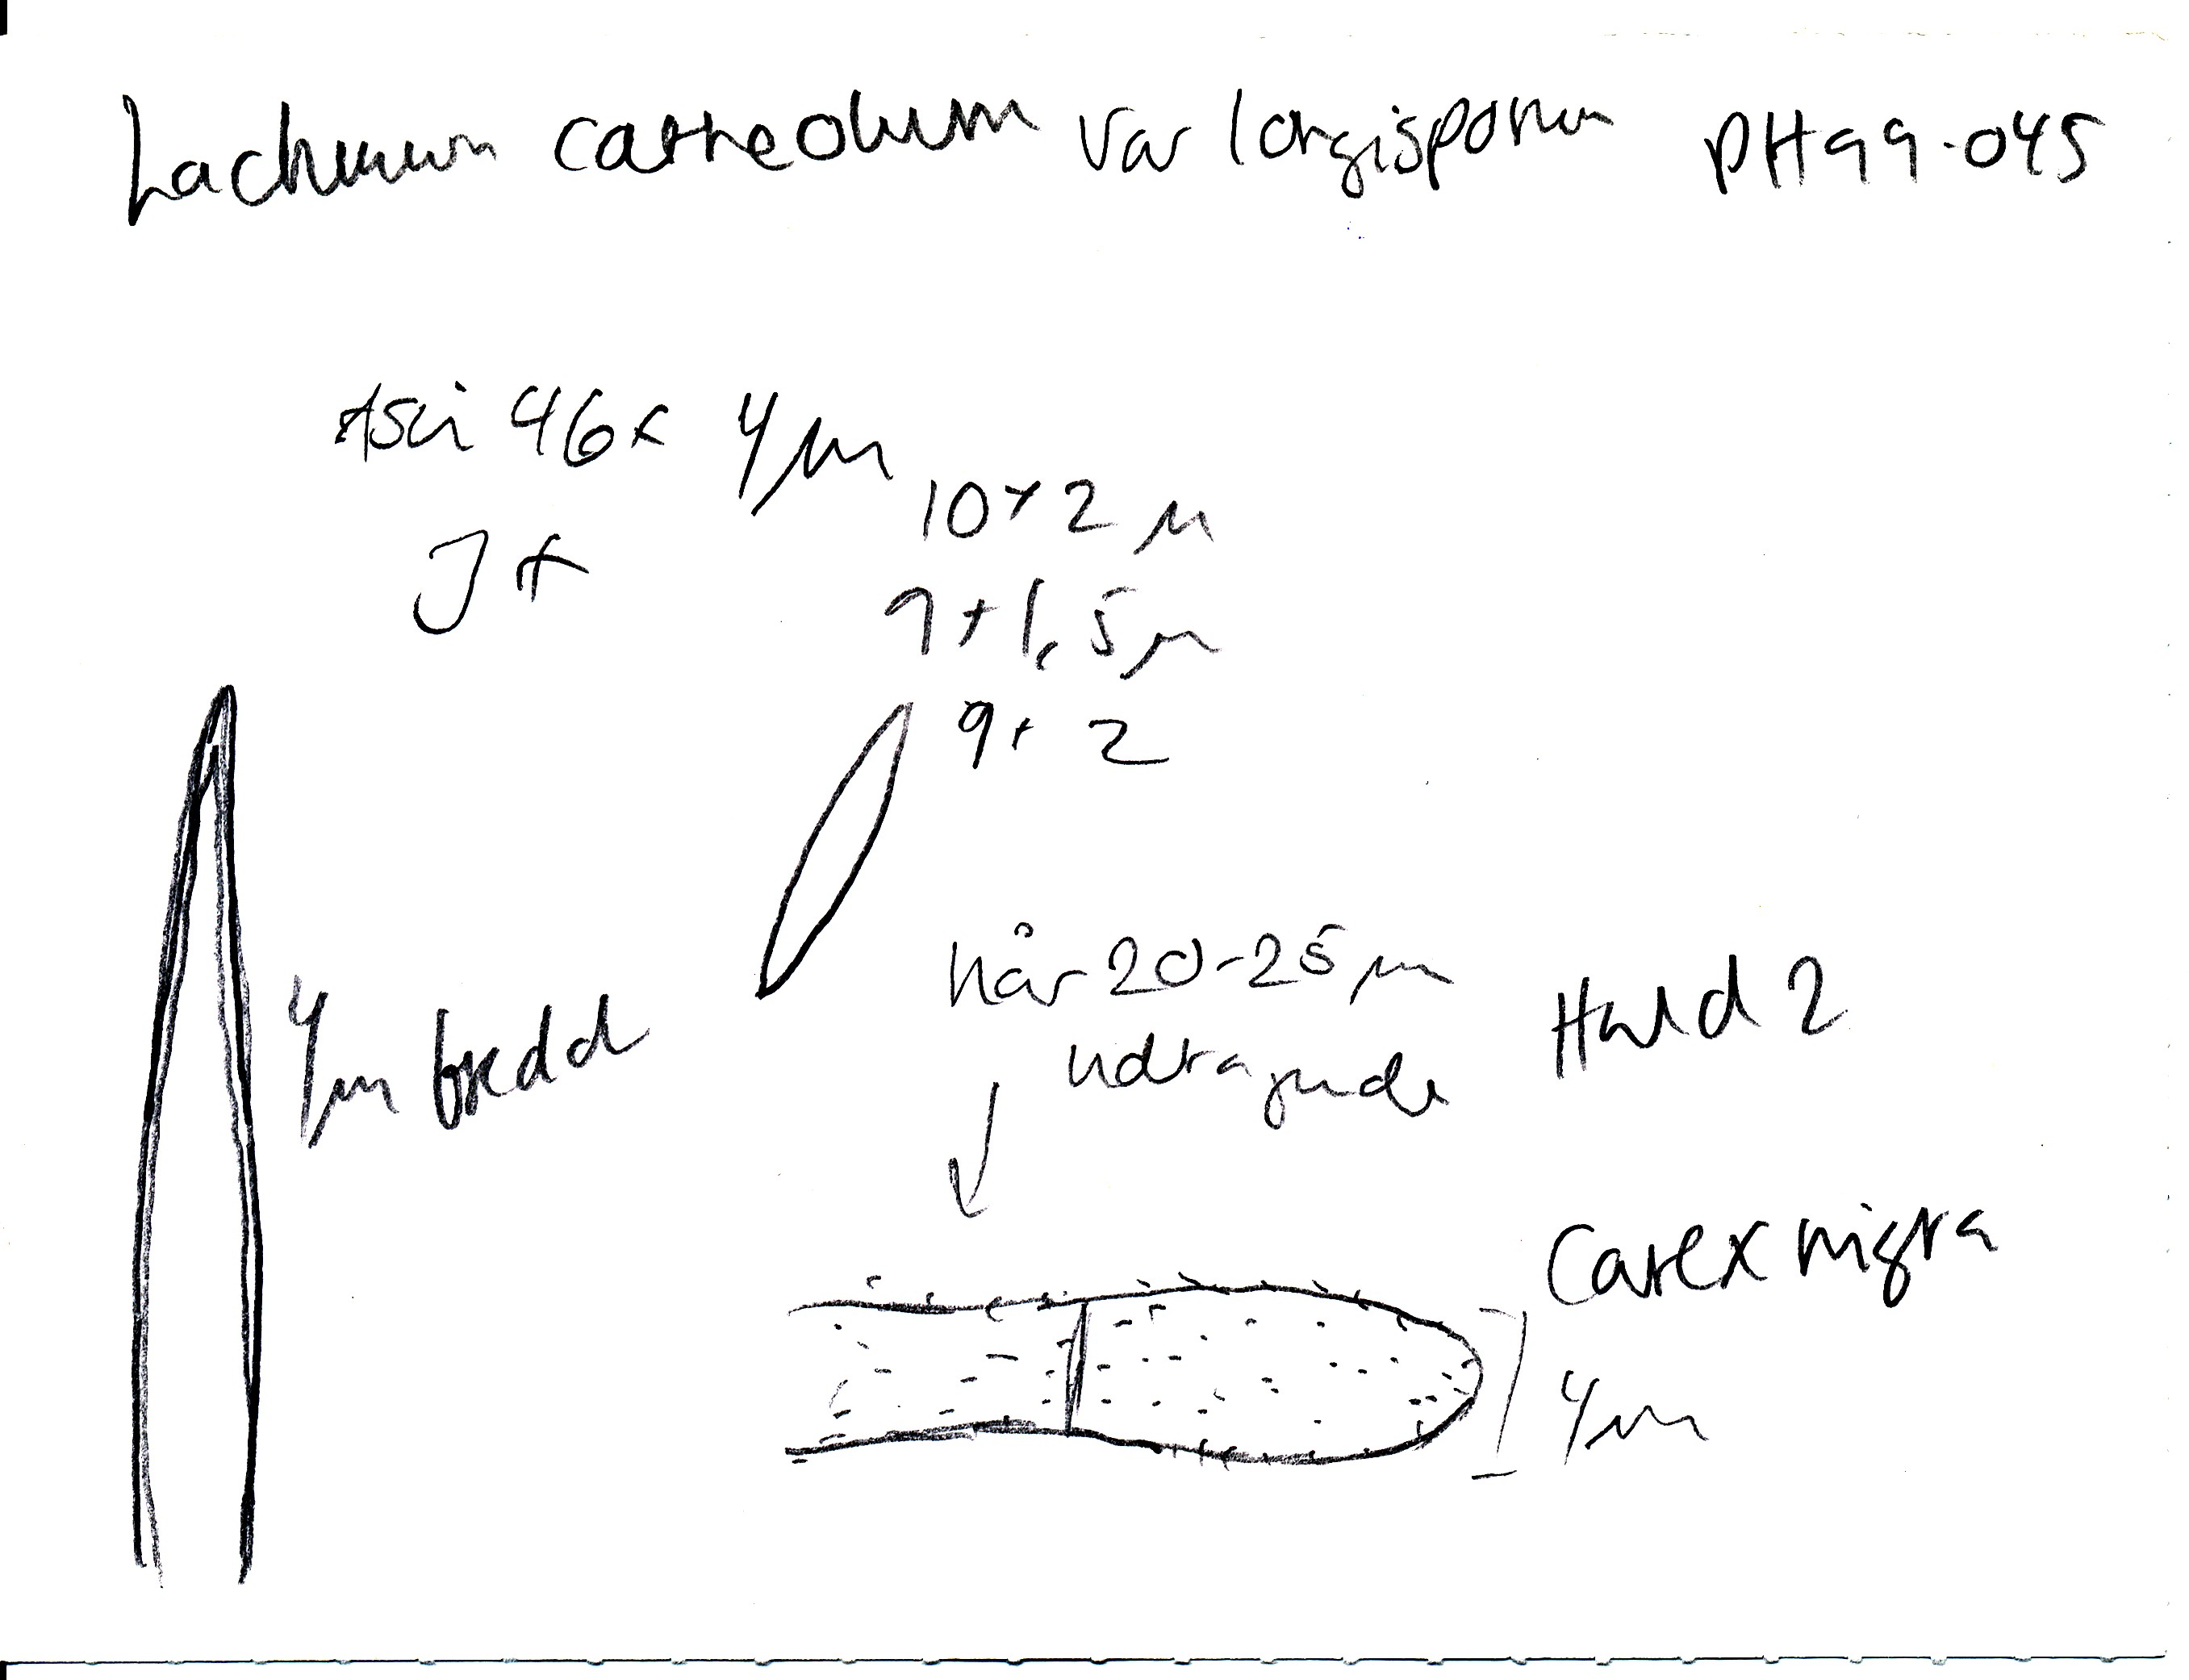 Lachnum carneolum var longisporum PH99-045
Asci 46x 4µm
J+
10x2 µ
9x1,5µ
9x 2
4µm bredd
hår 20-25µm
udragende
Hald 2
Carex nigra
4µm